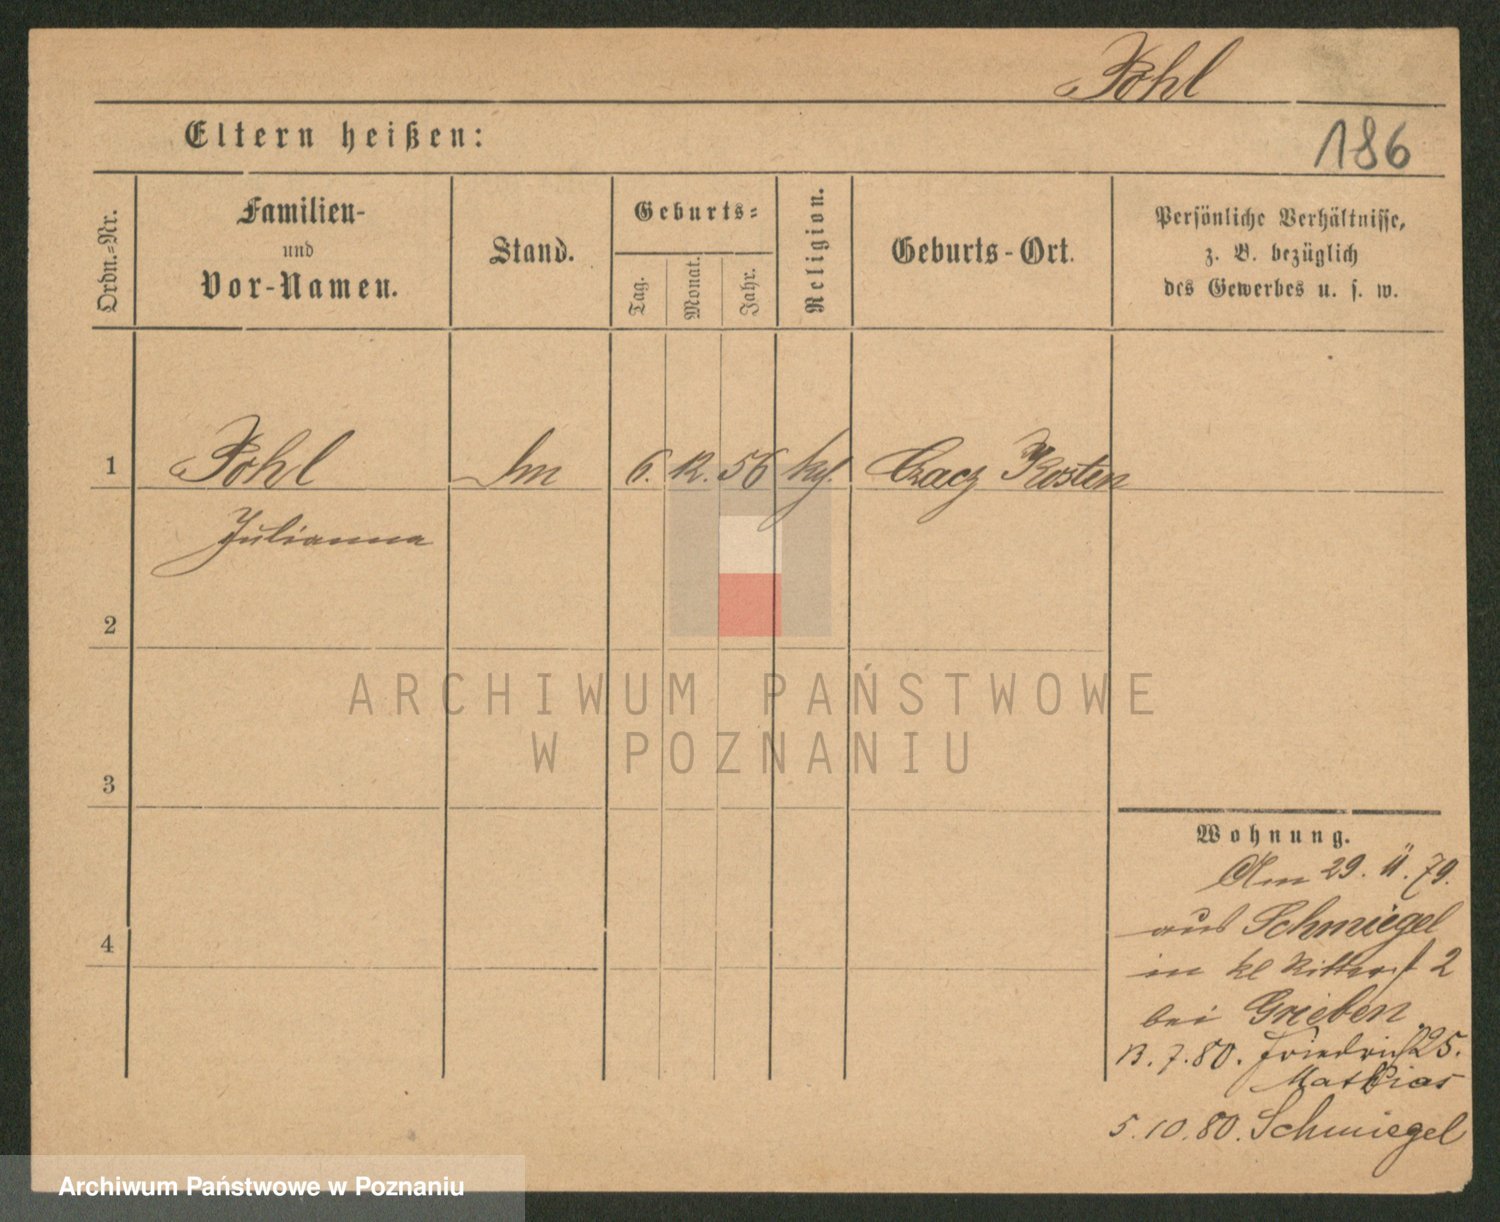 Pohl
Eltern heißen:
186
Ordn.-Nr.
Familien-
und
Vor-Namen.
Stand.
Geburts-
Tag.
Monat.
Jahr.
Religion.
Geburts-Ort.
Persönliche Verhältnisse,
z. B. bezüglich
des Gewerbes u. s. w.
1 Pohl 6. 12. 56 Czacz Kosten
Julianna
2
ARCHIWUM PAŃSTWOWE
W POZNANIU
3
Wohnung.
Am 29. 11. 79.
aus Schmiegel
4
in kl Ritterst 2
bei Grieben
13. 7. 80. Friedrichst 25.
Mathias
5. 10. 80. Schmiegel
Archiwum Państwowe w Poznaniu